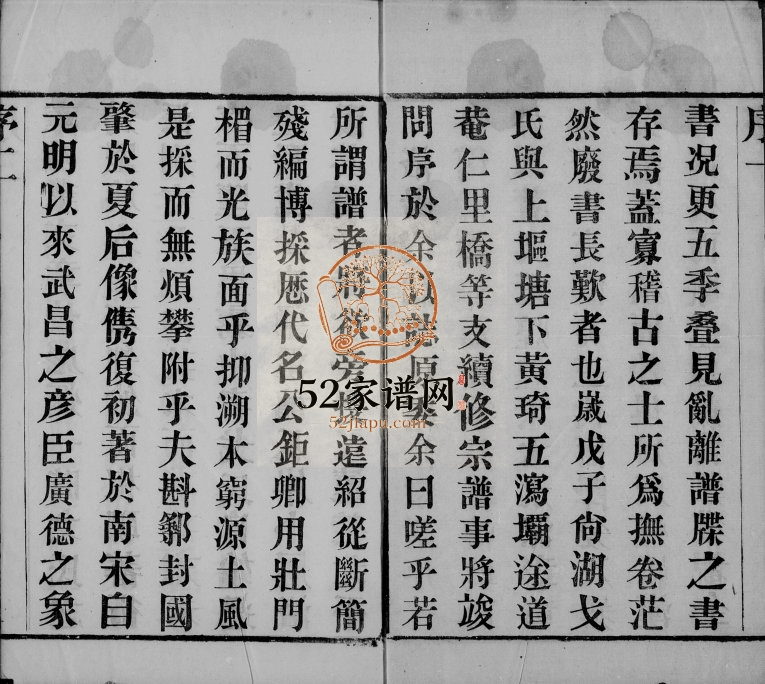 序一
書况更五季叠見亂離譜牒之書
存焉蓋寡稽古之士所爲撫卷茫
然廢書長歎者也嵗戊子尙湖戈
氏與上塸塘下黄琦五瀉壩途道
菴仁里橋等支續修宗譜事將竣
問序於余以誌原委余曰嗟乎若
所謂譜者將欲旁搜遠紹從斷簡
殘編博採厯代名公鉅卿用壯門
楣而光族面乎抑溯本窮源土風
是採而無煩攀附乎夫斟鄩封國
肇於夏后像儁復初著於南宋自
元明以來武昌之彦臣廣德之象
序二
52家谱网
52jiapu.com